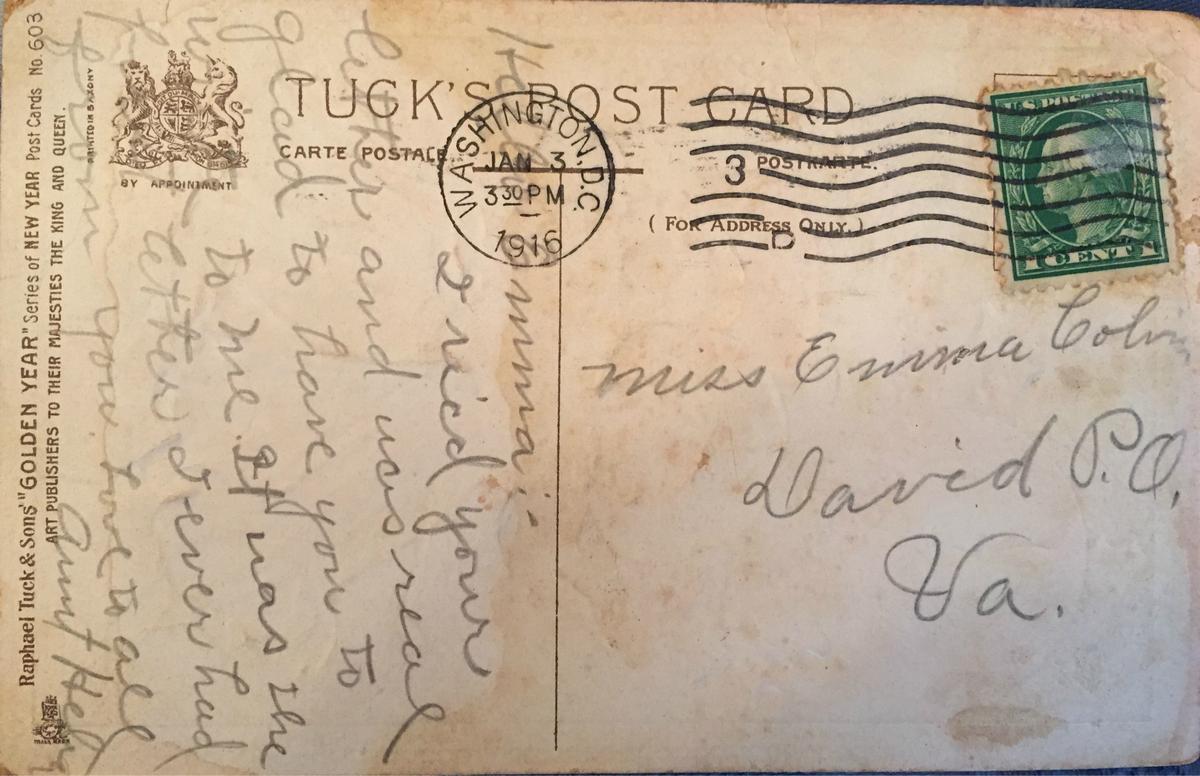 TUCK'S POST CARD
CARTE POSTALE
POSTKARTE.
(FOR ADDRESS ONLY.)
BY APPOINTMENT
PRINTED IN SAXONY
Raphael Tuck & Sons' "GOLDEN YEAR" Series of NEW YEAR Post Cards No. 603
ART PUBLISHERS TO THEIR MAJESTIES THE KING AND QUEEN.
TRADE MARK
WASHINGTON, D.C.
JAN 3
3 30 PM
1916
3
D
U.S. POSTAGE
1 CENT 1
Miss Emma Colvin
David P.O.
Va.
Hello Emma:-
I ricd your
letter and was real
glad to have you to
to me It was the
letter I ever had
from you Love to all
Aunt